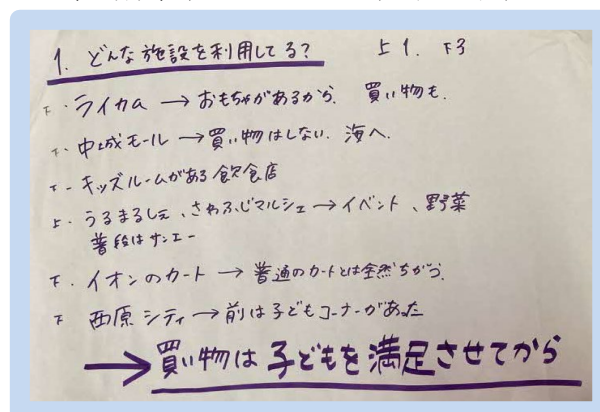 1. どんな施設を利用してる? 上1. 下3
下・ライカム → おもちゃがあるから. 買い物も.
下・中城モール → 買い物はしない. 海へ.
下・キッズルームがある飲食店
上・うるまるしぇ、さわふじマルシェ → イベント、野菜
普段はサンエー
下・イオンのカート → 普通のカートとは全然ちがう.
下 西原シティ → 前は子どもコーナーがあった
→ 買い物は子どもを満足させてから